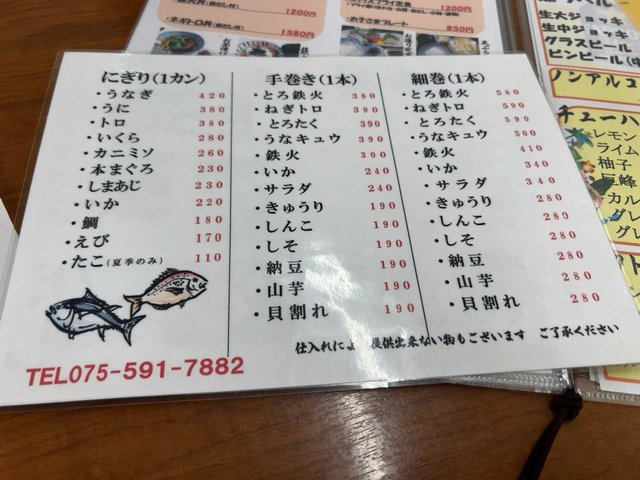 1200円
・ネギトロ丼(赤だし付)
1580円
1200円
・お子さまプレート
850円
生大ジョッキ
生中ジョッキ
グラスビール
ノンアルコ
チューハ
レモン
ライム
柚子
巨峰
カル
グレ
グレ
にぎり(1カン)
・うなぎ 420
・うに 380
・トロ 380
・いくら 280
・カニミソ 260
・本まぐろ 230
・しまあじ 230
・いか 220
・鯛 180
・えび 170
・たこ(夏季のみ) 110
手巻き(1本)
・とろ鉄火 380
・ねぎトロ 390
・とろたく 390
・うなキュウ 390
・鉄火 300
・いか 240
・サラダ 240
・きゅうり 190
・しんこ 190
・しそ 190
・納豆 190
・山芋 190
・貝割れ 190
細巻(1本)
・とろ鉄火 580
・ねぎトロ 590
・とろたく 590
・うなキュウ 500
・鉄火 410
・いか 340
・サラダ 340
・きゅうり 280
・しんこ 280
・しそ 280
・納豆 280
・山芋 280
・貝割れ 280
仕入れによ 提供出来ない物もございます ご了承ください
TEL075-591-7882